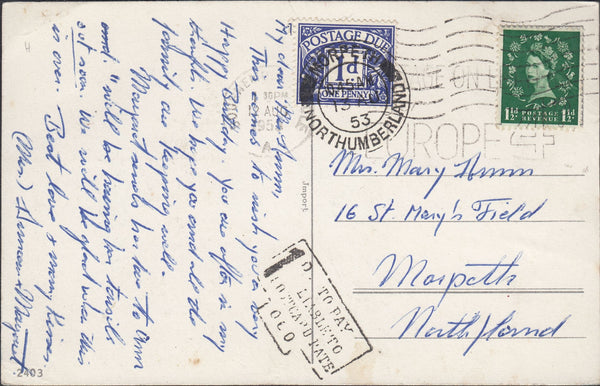 My dear Mrs. Hunn,
This comes to wish you a very
Happy Birthday. You are often in my
thoughts. We hope you and all the
family are keeping well.
Margaret sends her love to Ann
and will be having her tonsils
out soon. We will be glad when this
is over.
Best love & many Kisses
(Mrs.) & Margaret
POSTAGE DUE
1D
ONE PENNY
MORPETH
53
NORTHUMBERLAND
POSTAGE REVENUE
1½D 1½D
EUROPE
Mrs. Mary Hunn
16 St. Mary's Field
Morpeth
Northld
Import
1D TO PAY
LIABLE TO
POSTCARD RATE
1060
-2403